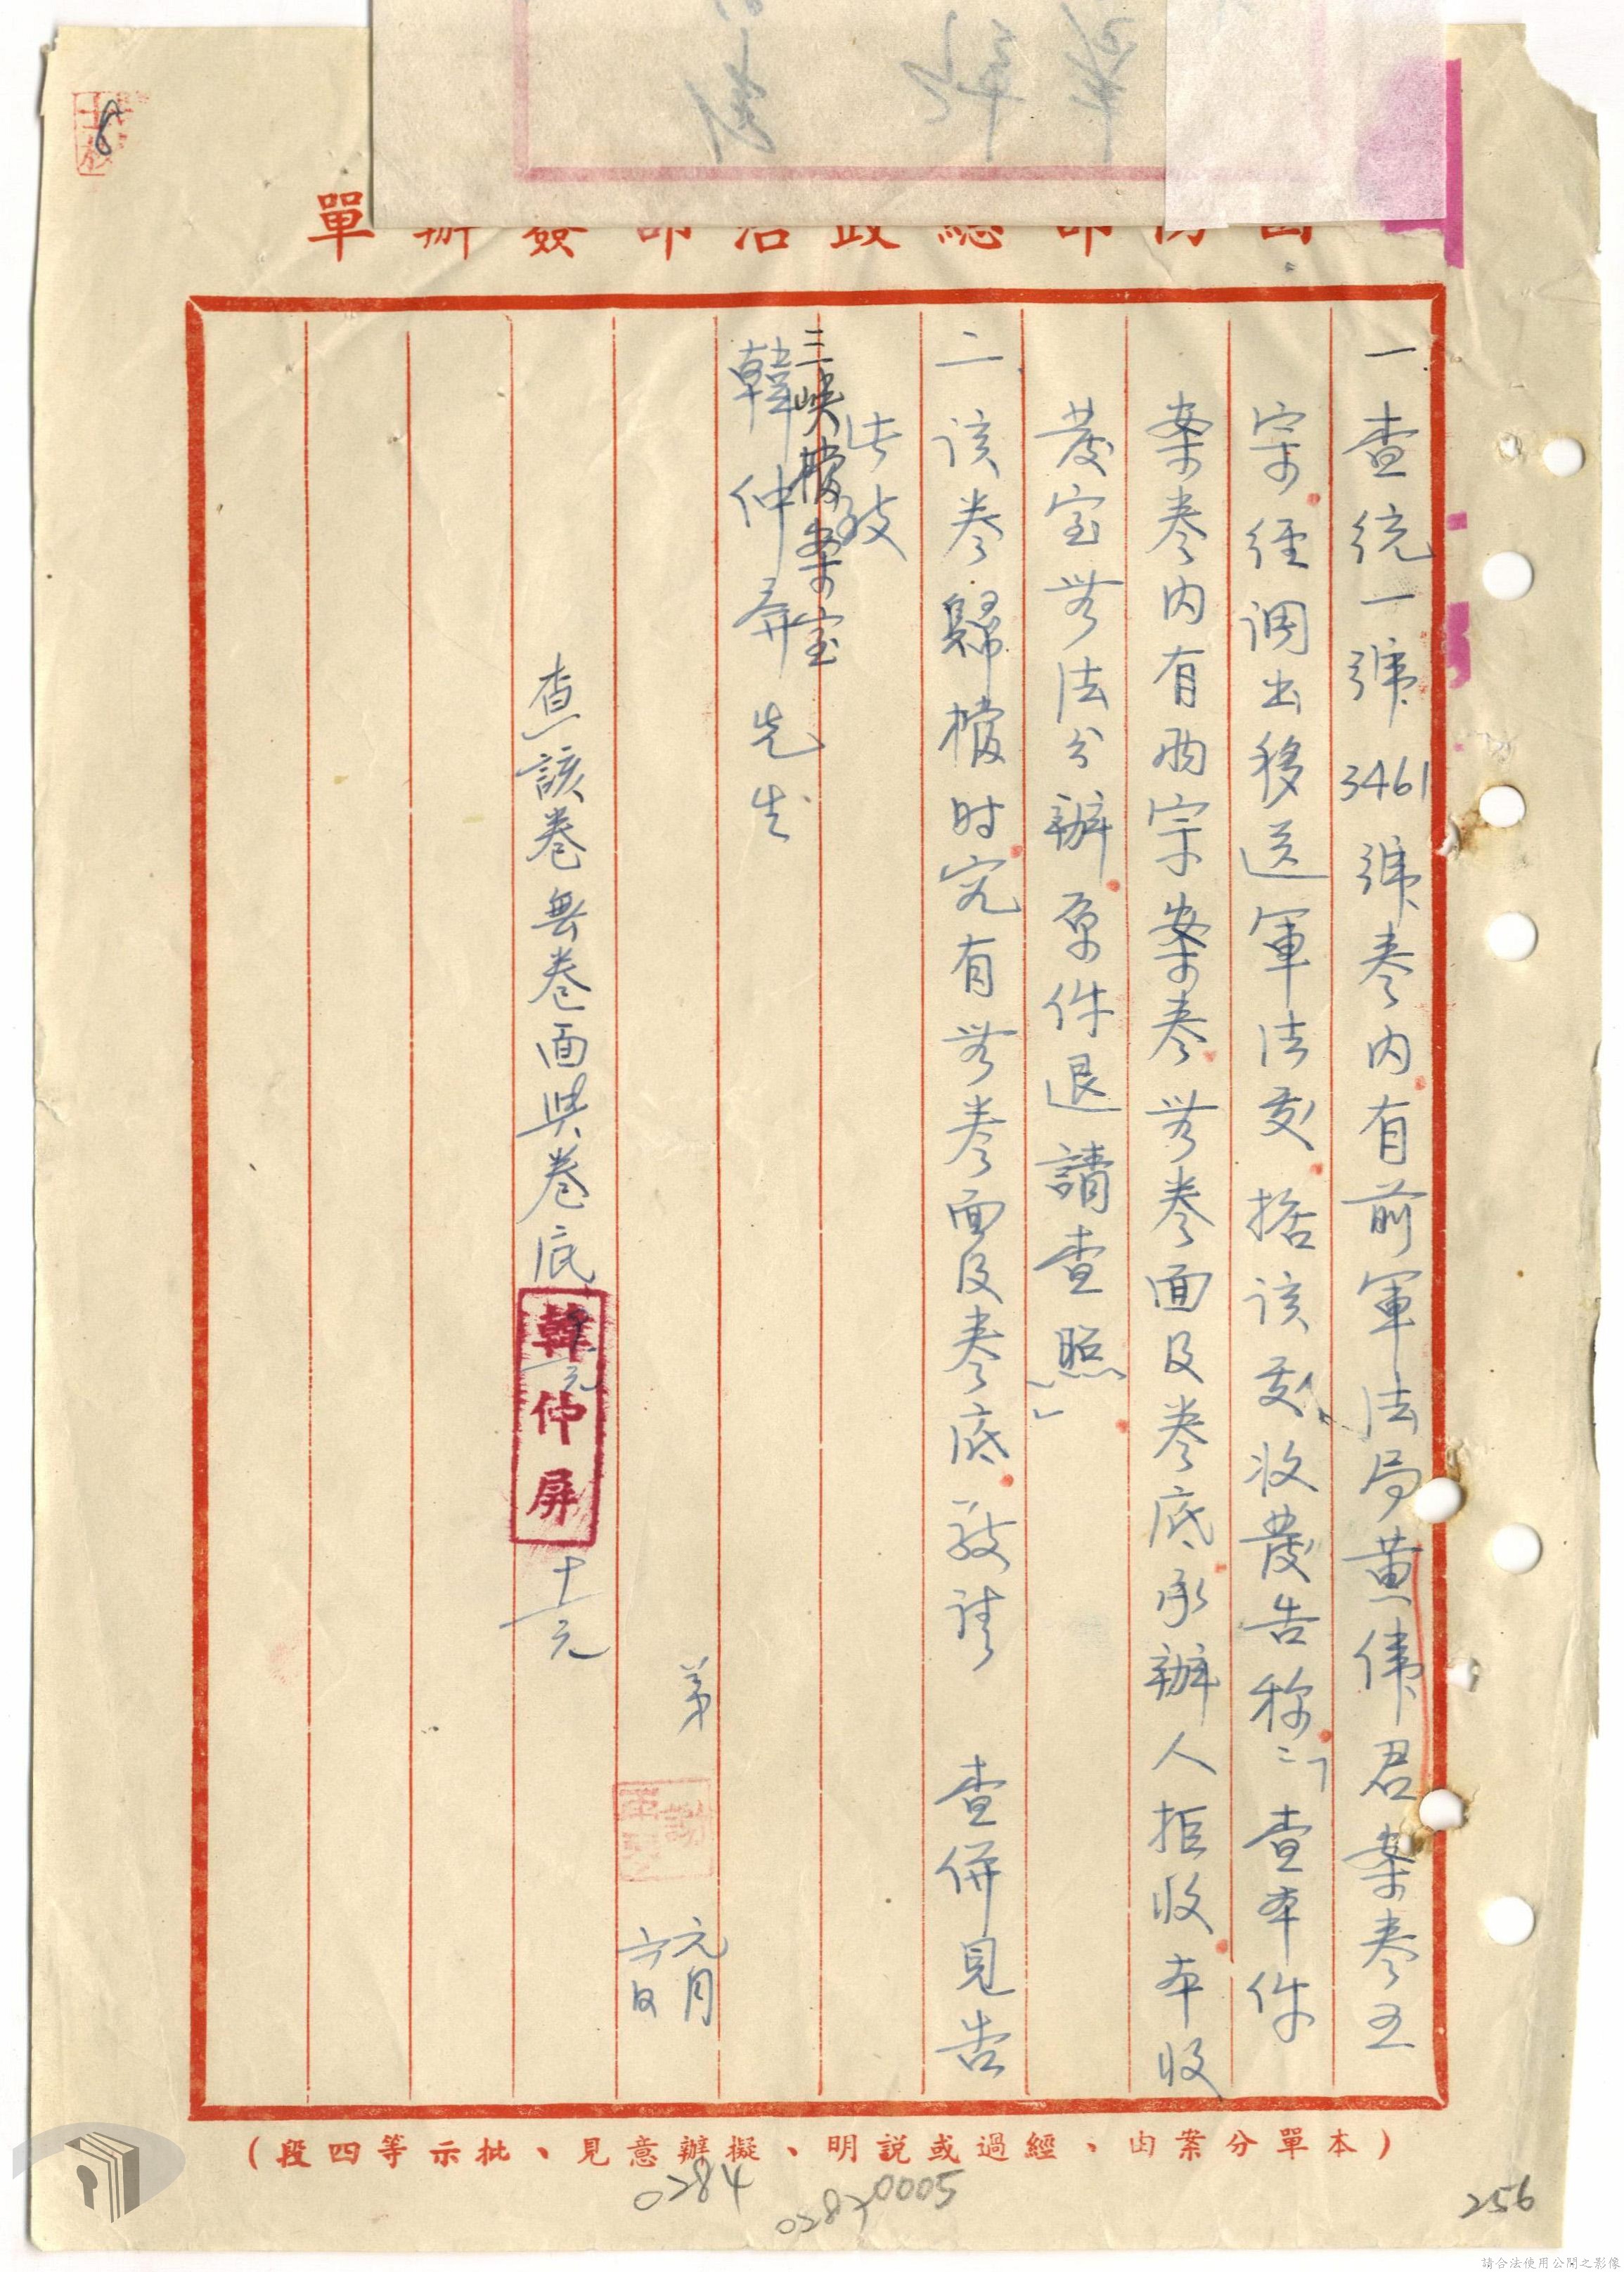 國防部總政治部簽辦單
一 查統一號3461號卷內有前軍法局黃偉君案卷五
宗經調出移送軍法處 據該處收發告稱:「查本件
案卷內有兩宗案卷無卷面及卷底承辦人拒收本收
發室無法分辦原件退請查照」
二 該卷歸檔時究有無卷面及卷底 敬請 查併見告
此致
三峽檔案室
韓仲屏先生
弟
謝
元月
六日
查該卷無卷面與卷底
韓仲屏
十/元
(本單分案由、經過或說明、擬辦意見、批示等四段)
0284
0005
256
請合法使用公開之影像